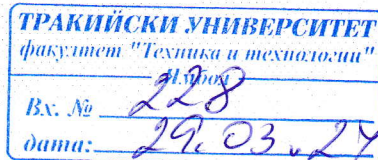 ТРАКИЙСКИ УНИВЕРСИТЕТ
факултет "Техника и технологии"
Ямбол
Вх. № 228
дата: 29.03.24